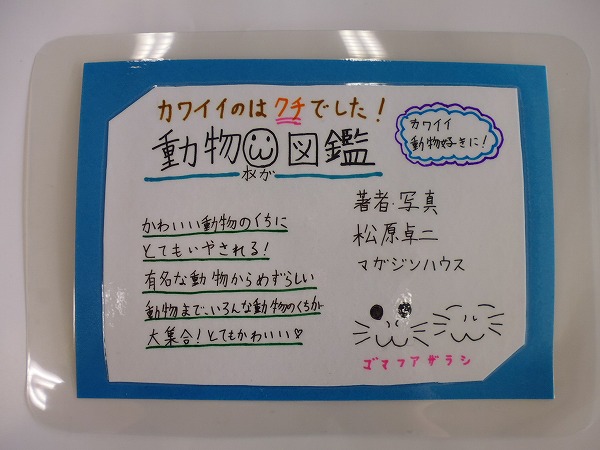 カワイイのはクチでした!
動物ω図鑑
カワイイ
動物好きに!
著者・写真
松原卓二
マガジンハウス
かわいい動物のくちに
とてもいやされる!
有名な動物からめずらしい
動物まで、いろんな動物のくちが
大集合!とてもかわいい♡
ゴマフアザラシ